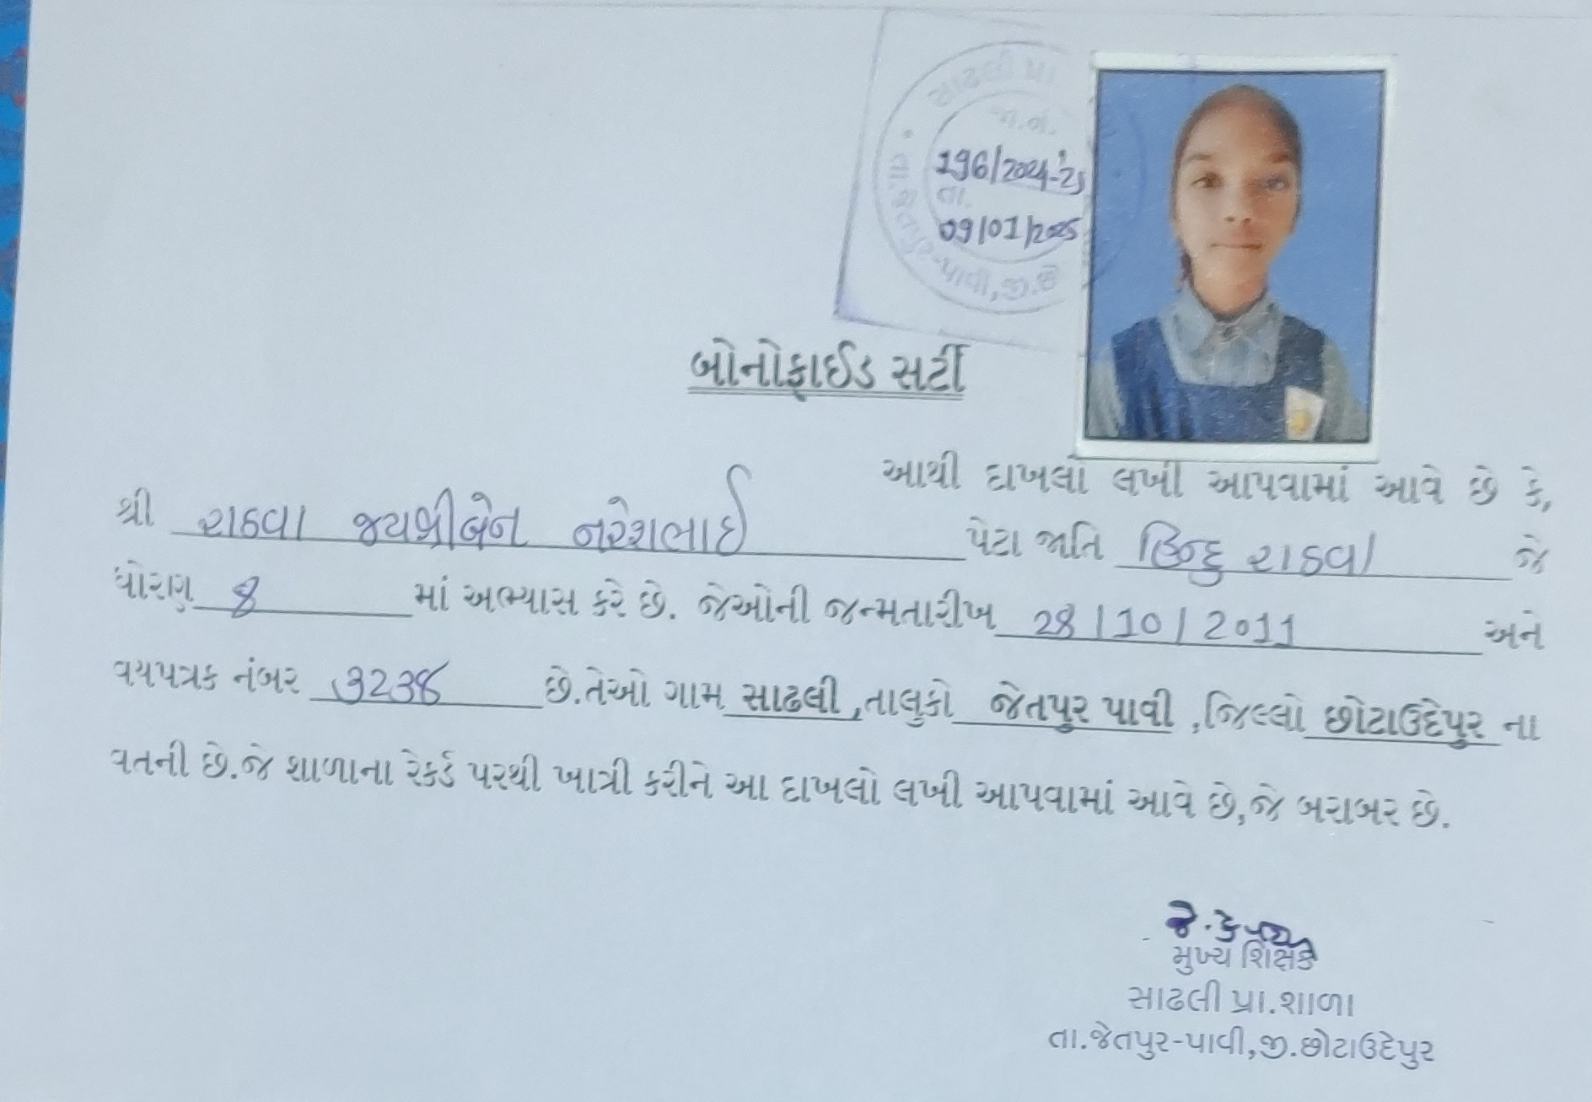 સાઢલી પ્રા
જા.નં.
196/2024-25
તા.
09/01/2025
તા.જેતપુર-પાવી,જી.છો
બોનોફાઈડ સર્ટી
આથી દાખલો લખી આપવામાં આવે છે કે,
શ્રી રાઠવા જયશ્રીબેન નરેશભાઈ પેટા જાતિ હિન્દુ રાઠવા જે
ધોરણ 8 માં અભ્યાસ કરે છે. જેઓની જન્મતારીખ 28/10/2011 અને
વયપત્રક નંબર 3238 છે.તેઓ ગામ સાઢલી,તાલુકો જેતપુર પાવી,જિલ્લો છોટાઉદેપુર ના
વતની છે.જે શાળાના રેકર્ડ પરથી ખાત્રી કરીને આ દાખલો લખી આપવામાં આવે છે,જે બરાબર છે.
મુખ્ય શિક્ષક
સાઢલી પ્રા.શાળા
તા.જેતપુર-પાવી,જી.છોટાઉદેપુર